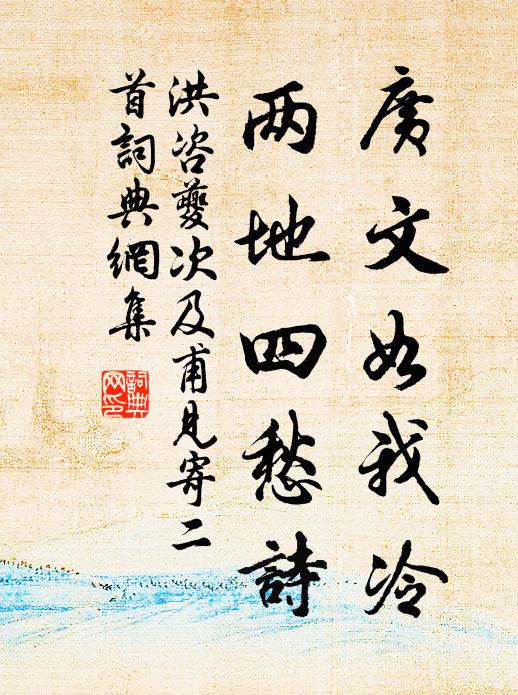 廣文如我冷
两地四愁詩
洪咨夔次及甫見寄二
首詞典網集
詞典
网印